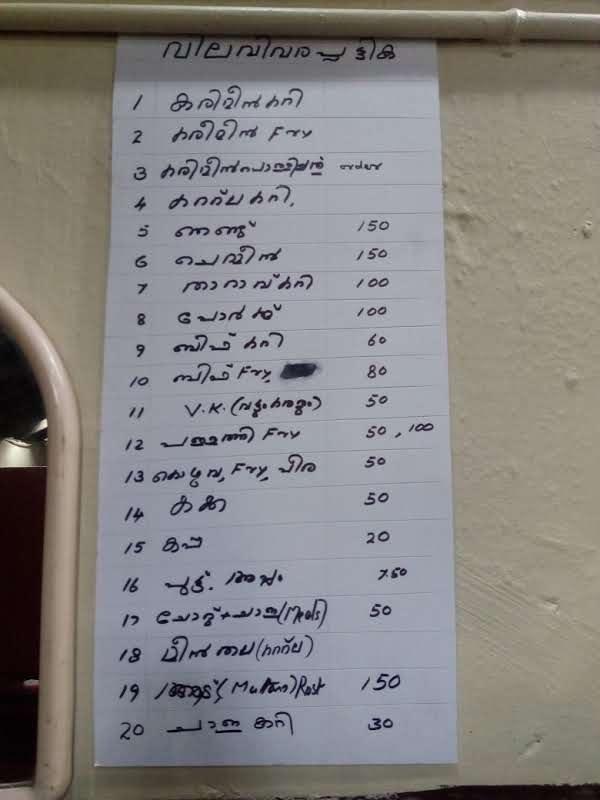 വിലവിവരപ്പട്ടിക
1 കരിമീൻകറി
2 കരീമീൻ Fry
3 കരിമീൻപൊള്ളിച്ചത് order
4 കാളകറി.
5 ഞണ്ടു് 150
6 ചെമ്മീൻ 150
7 താറാവ്കറി 100
8 പോർക്ക് 100
9 ബീഫ് കറി 60
10 ബീഫ് Fry, 80
11 V.K. 50
12 Fry 50, 100
13 കൊഴുവ, Fry, പീര 50
14 കക്ക 50
15 കപ്പ 20
16 പുട്ട്. അപ്പം 7.50
17 ചോറ് + (Meals) 50
18 മീൻ തല
19 ആട്ട് (Mutton) Rost 150
20 കറി 30